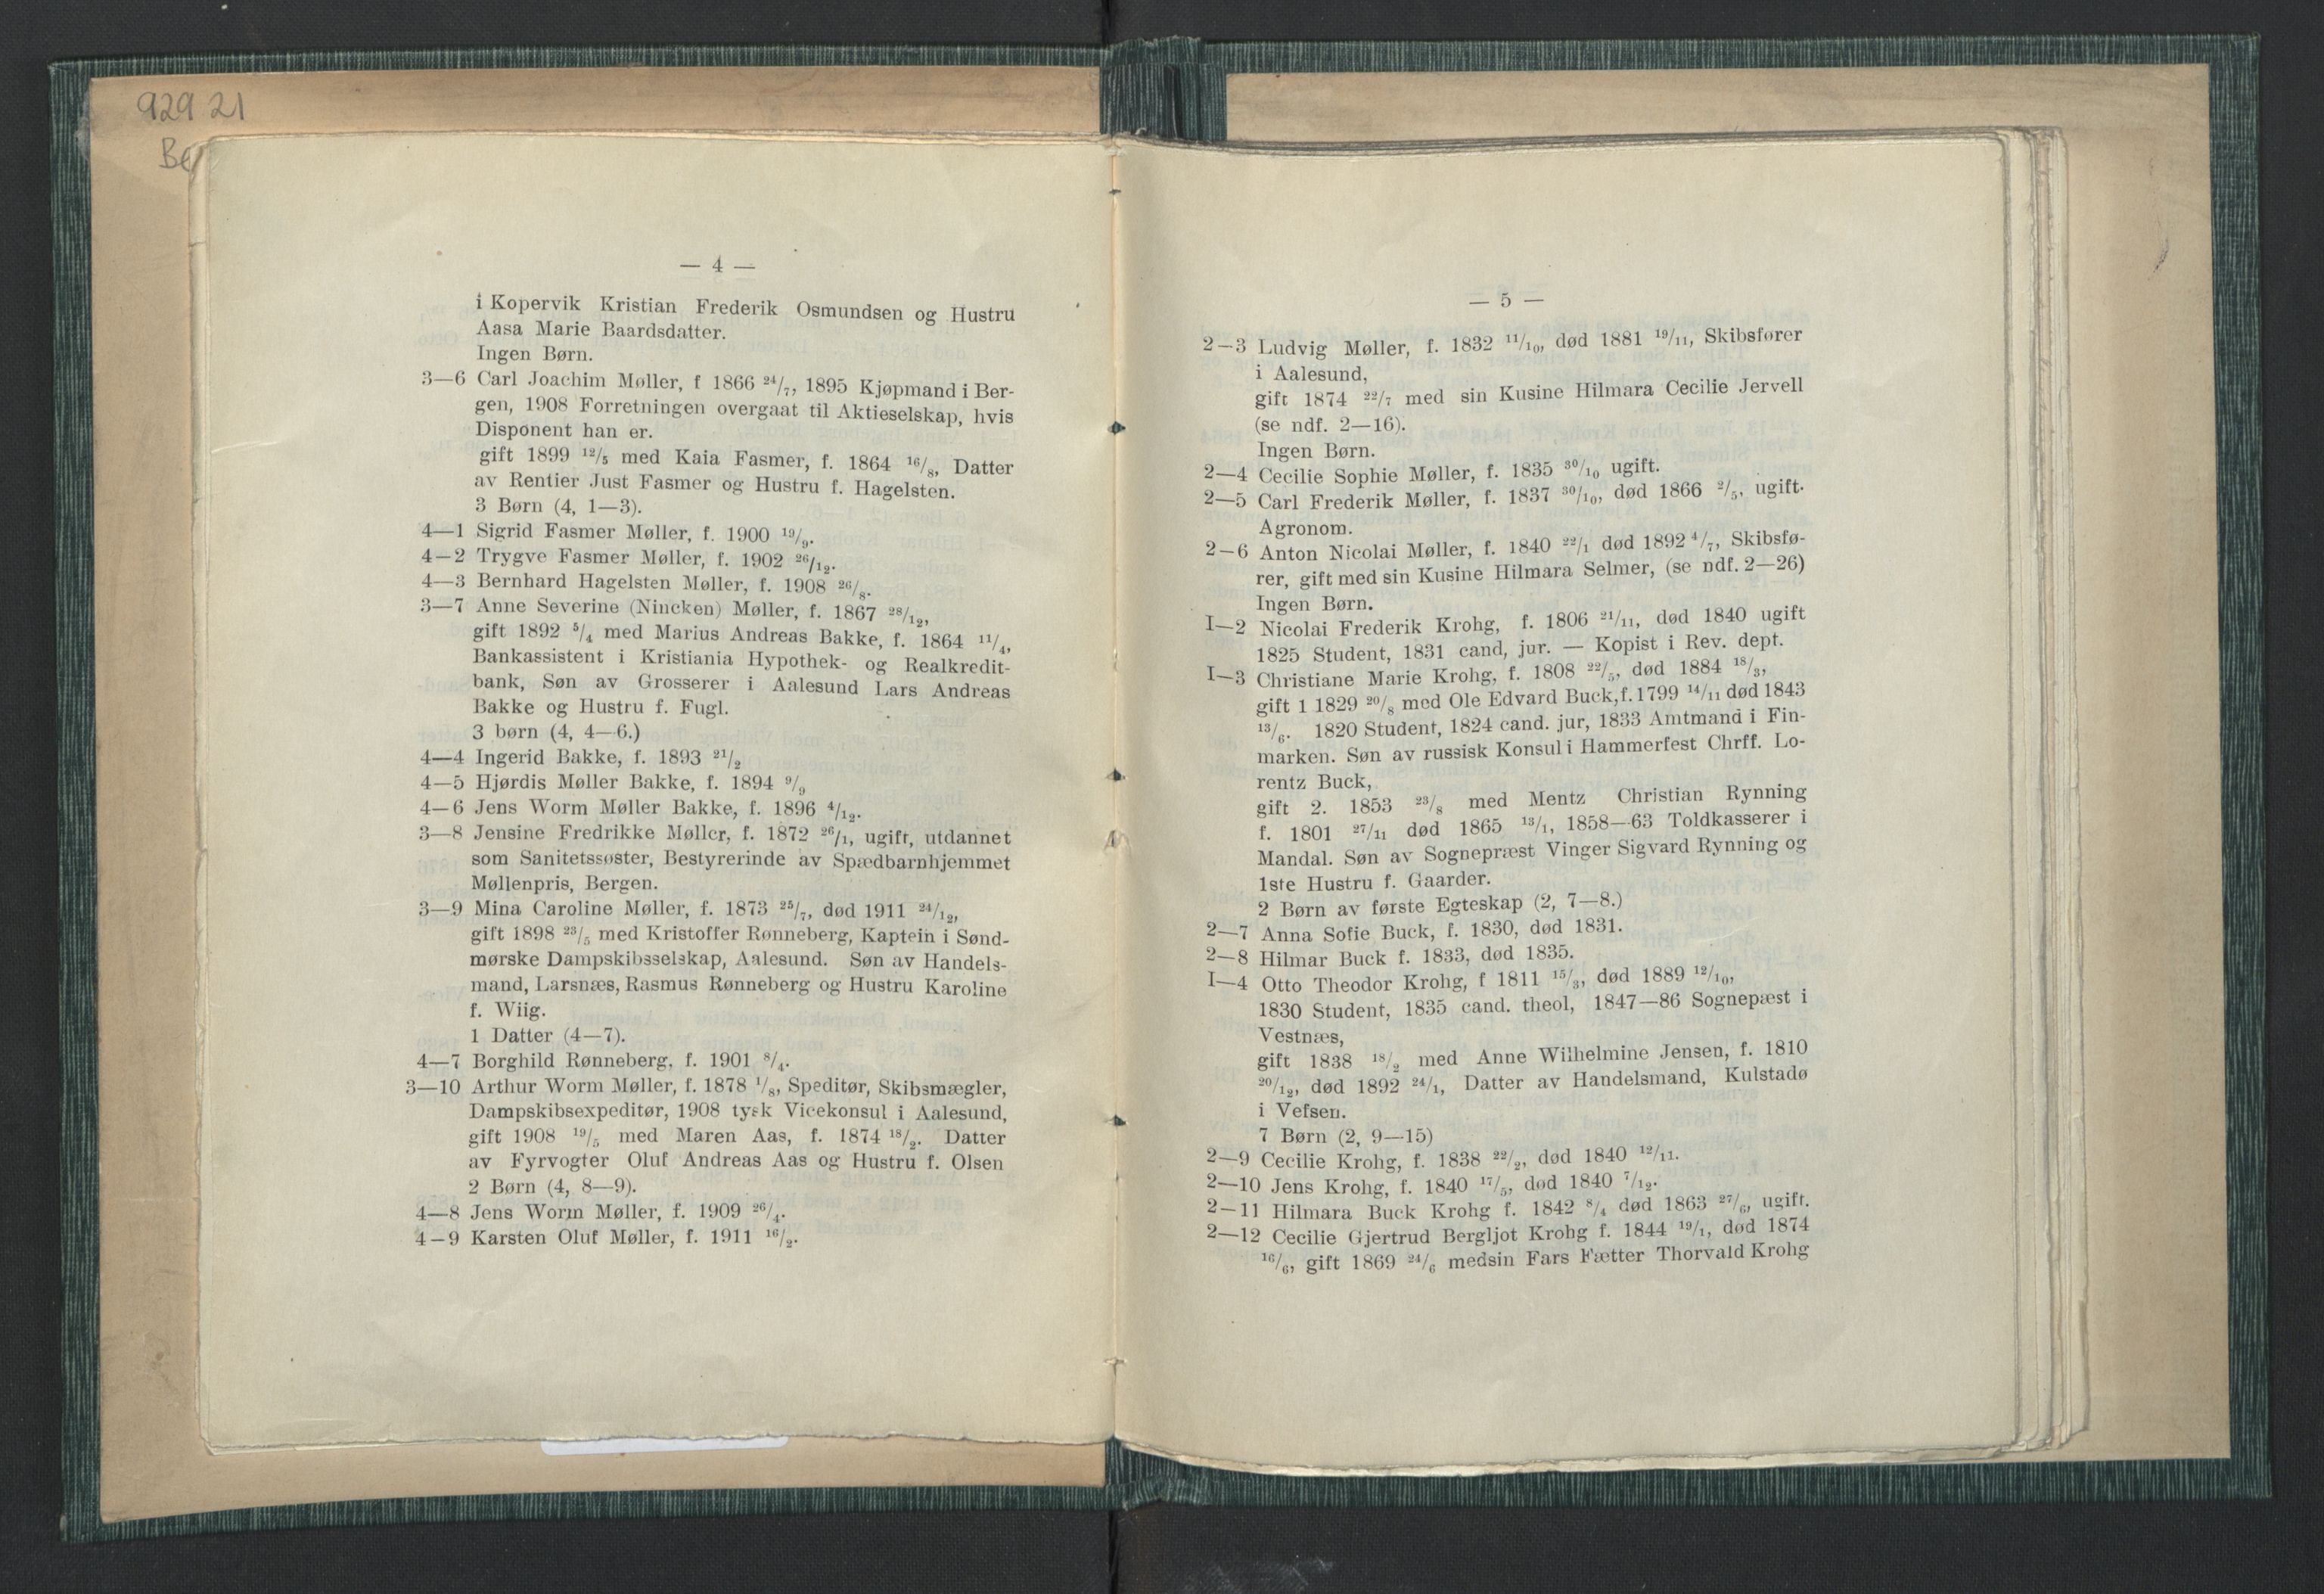 929 21
— 4 —
i Kopervik Kristian Frederik Osmundsen og Hustru
Aasa Marie Baardsdatter.
Ingen Børn.
3—6 Carl Joachim Møller, f 1866 24/7, 1895 Kjøpmand i Ber-
gen, 1908 Forretningen overgaat til Aktieselskap, hvis
Disponent han er.
gift 1899 12/5 med Kaia Fasmer, f. 1864 16/8, Datter
av Rentier Just Fasmer og Hustru f. Hagelsten.
3 Børn (4, 1—3).
4—1 Sigrid Fasmer Møller, f. 1900 19/9.
4—2 Trygve Fasmer Møller, f. 1902 26/12.
4—3 Bernhard Hagelsten Møller, f. 1908 26/8.
3—7 Anne Severine (Nincken) Møller, f. 1867 28/12,
gift 1892 5/4 med Marius Andreas Bakke, f. 1864 11/4,
Bankassistent i Kristiania Hypothek- og Realkredit-
bank, Søn av Grosserer i Aalesund Lars Andreas
Bakke og Hustru f. Fugl.
3 børn (4, 4—6.)
4—4 Ingerid Bakke, f. 1893 21/2
4—5 Hjørdis Møller Bakke, f. 1894 9/9
4—6 Jens Worm Møller Bakke, f. 1896 4/12.
3—8 Jensine Fredrikke Møller, f. 1872 26/1, ugift, utdannet
som Sanitetssøster, Bestyrerinde av Spædbarnhjemmet
Møllenpris, Bergen.
3—9 Mina Caroline Møller, f. 1873 25/7, død 1911 24/12,
gift 1898 23/5 med Kristoffer Rønneberg, Kaptein i Sønd-
mørske Dampskibsselskap, Aalesund. Søn av Handels-
mand, Larsnæs, Rasmus Rønneberg og Hustru Karoline
f. Wiig.
1 Datter (4—7).
4—7 Borghild Rønneberg, f. 1901 8/4.
3—10 Arthur Worm Møller, f. 1878 1/8, Speditør, Skibsmægler,
Dampskibsexpeditør, 1908 tysk Vicekonsul i Aalesund,
gift 1908 19/5 med Maren Aas, f. 1874 18/2. Datter
av Fyrvogter Oluf Andreas Aas og Hustru f. Olsen
2 Børn (4, 8—9).
4—8 Jens Worm Møller, f. 1909 26/4.
4—9 Karsten Oluf Møller, f. 1911 16/2.
— 5 —
2—3 Ludvig Møller, f. 1832 11/10, død 1881 19/11, Skibsfører
i Aalesund,
gift 1874 22/7 med sin Kusine Hilmara Cecilie Jervell
(se ndf. 2—16).
Ingen Børn.
2—4 Cecilie Sophie Møller, f. 1835 30/10 ugift.
2—5 Carl Frederik Møller, f. 1837 30/10, død 1866 2/5, ugift.
Agronom.
2—6 Anton Nicolai Møller, f. 1840 22/1 død 1892 4/7, Skibsfø-
rer, gift med sin Kusine Hilmara Selmer, (se ndf. 2—26)
Ingen Børn.
I—2 Nicolai Frederik Krohg, f. 1806 21/11, død 1840 ugift
1825 Student, 1831 cand, jur. — Kopist i Rev. dept.
I—3 Christiane Marie Krohg, f. 1808 22/5, død 1884 18/3,
gift 1 1829 20/8 med Ole Edvard Buck, f. 1799 14/11 død 1843
13/6. 1820 Student, 1824 cand. jur, 1833 Amtmand i Fin-
marken. Søn av russisk Konsul i Hammerfest Chrff. Lo-
rentz Buck,
gift 2. 1853 23/8 med Mentz Christian Rynning
f. 1801 27/11 død 1865 13/1, 1858—63 Toldkasserer i
Mandal. Søn av Sognepræst Vinger Sigvard Rynning og
1ste Hustru f. Gaarder.
2 Børn av første Egteskap (2, 7—8.)
2—7 Anna Sofie Buck, f. 1830, død 1831.
2—8 Hilmar Buck f. 1833, død 1835.
I—4 Otto Theodor Krohg, f 1811 15/3, død 1889 12/10,
1830 Student, 1835 cand. theol, 1847—86 Sognepæst i
Vestnæs,
gift 1838 18/2 med Anne Wilhelmine Jensen, f. 1810
20/12, død 1892 24/1, Datter av Handelsmand, Kulstadø
i Vefsen.
7 Børn (2, 9—15)
2—9 Cecilie Krohg, f. 1838 22/2, død 1840 12/11.
2—10 Jens Krohg, f. 1840 17/5, død 1840 7/12.
2—11 Hilmara Buck Krohg f. 1842 8/4 død 1863 27/6, ugift.
2—12 Cecilie Gjertrud Bergljot Krohg f. 1844 19/1, død 1874
16/6, gift 1869 24/6 medsin Fars Fætter Thorvald Krohg